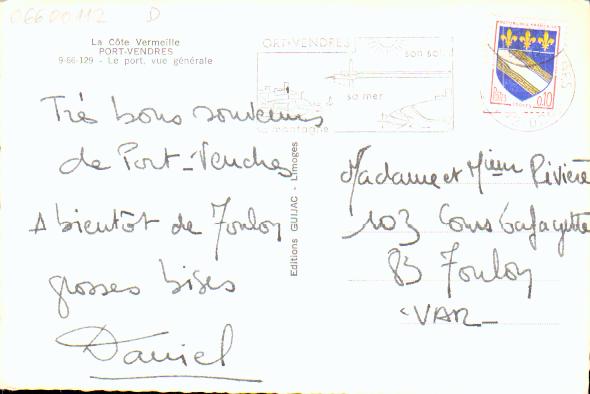 06600112 D
La Côte Vermeille
PORT-VENDRES
9-66-129 - Le port, vue générale
ORT-VENDRES
son soleil
sa mer
sa montagne
0,10
Très bons souvenirs
de Port-Vendres
A bientôt de Toulon
grosses bises
Daniel
Editions GUIJAC - Limoges
Madame et Mieur Rivière
103 Cours Lafayette
83 Toulon
-VAR-